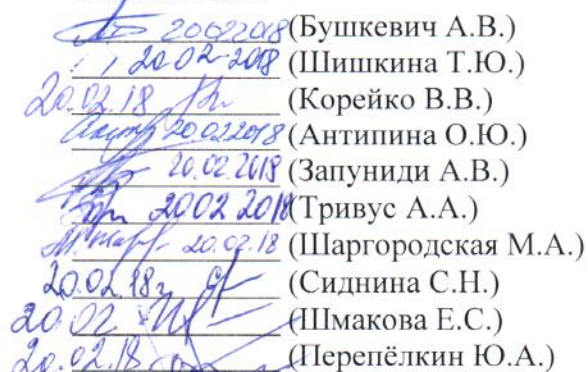 20022018 (Бушкевич А.В.)
20.02-2018 (Шишкина Т.Ю.)
20.02.18 (Корейко В.В.)
20022018 (Антипина О.Ю.)
20.02.2018 (Запуниди А.В.)
2002 2018 (Тривус А.А.)
20.02.18 (Шаргородская М.А.)
20.02.18г. (Сиднина С.Н.)
20.02 (Шмакова Е.С.)
20.02.18 (Перепёлкин Ю.А.)